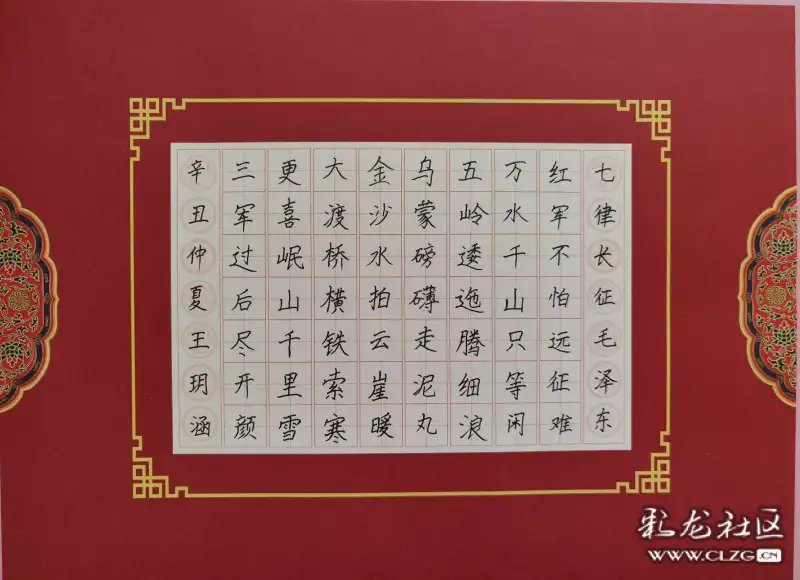 七律长征毛泽东
红军不怕远征难
万水千山只等闲
五岭逶迤腾细浪
乌蒙磅礴走泥丸
金沙水拍云崖暖
大渡桥横铁索寒
更喜岷山千里雪
三军过后尽开颜
辛丑仲夏王玥涵
彩龙社区
WWW.CLZG.CN